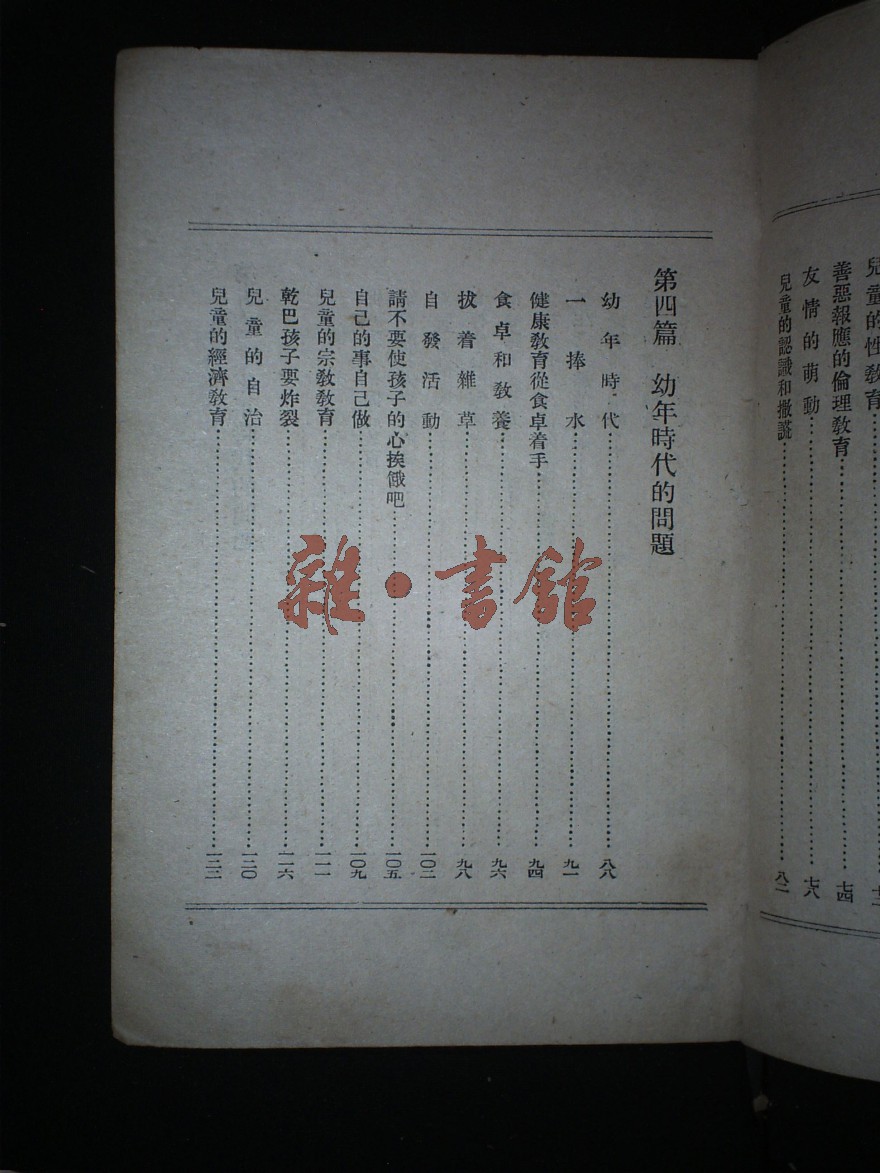 兒童的性教育
善惡報應的倫理教育……七四
友情的萌動……七八
兒童的認識和撒謊……八二
第四篇 幼年時代的問題
幼年時代……八八
一捧水……九一
健康教育從食卓着手……九四
食卓和教養……九六
拔着雜草……九八
自發活動……一〇二
請不要使孩子的心挨餓吧……一〇五
自己的事自己做……一〇九
兒童的宗教教育……一一一
乾巴孩子要炸裂……一一六
兒童的自治……一二〇
兒童的經濟教育……一二二
雜·書館